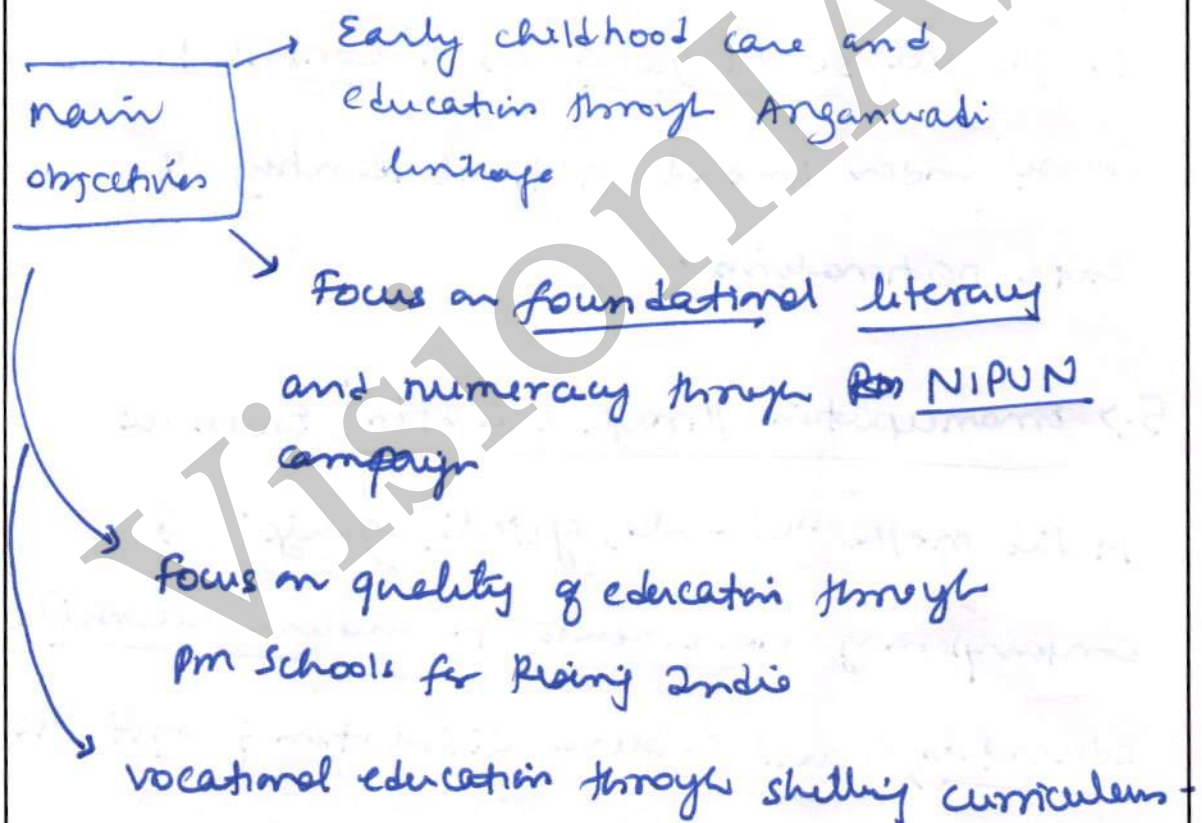 Early childhood care and
main
objectives
education through Anganwadi
linkage
Focus on foundational literacy
and numeracy through NIPUN
campaign
focus on quality of education through
pm schools for Rising India
vocational education through skilling curriculum-
VisionIA